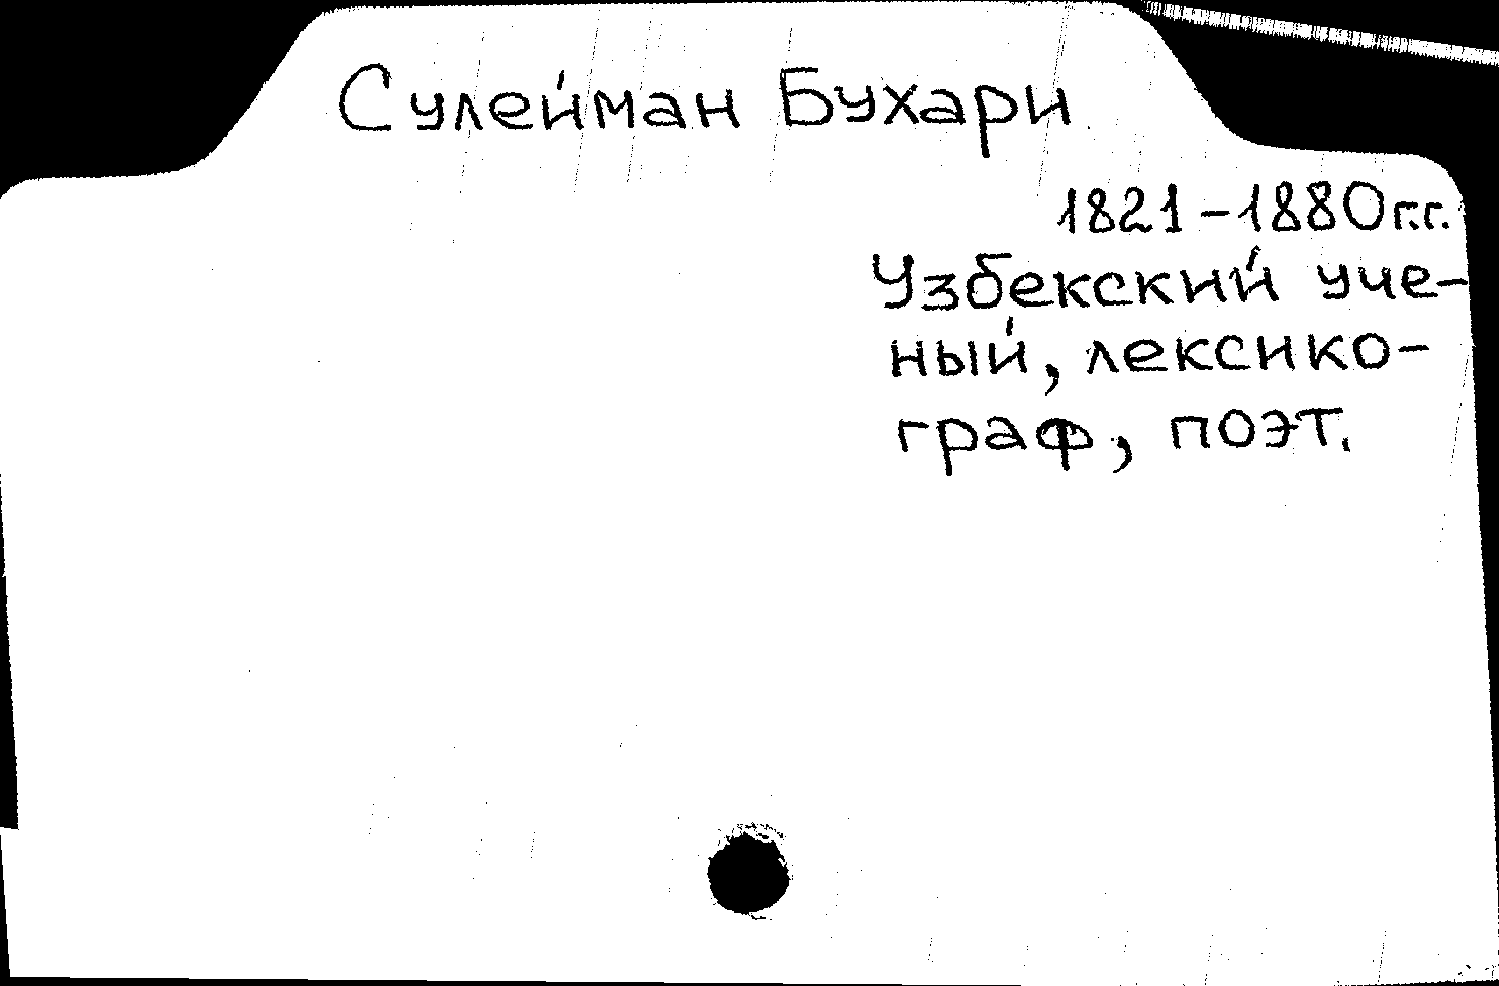 Сулейман Бухари
1821-1880 г.г.
Узбекский уче-
ный, лексико-
граф, поэт.